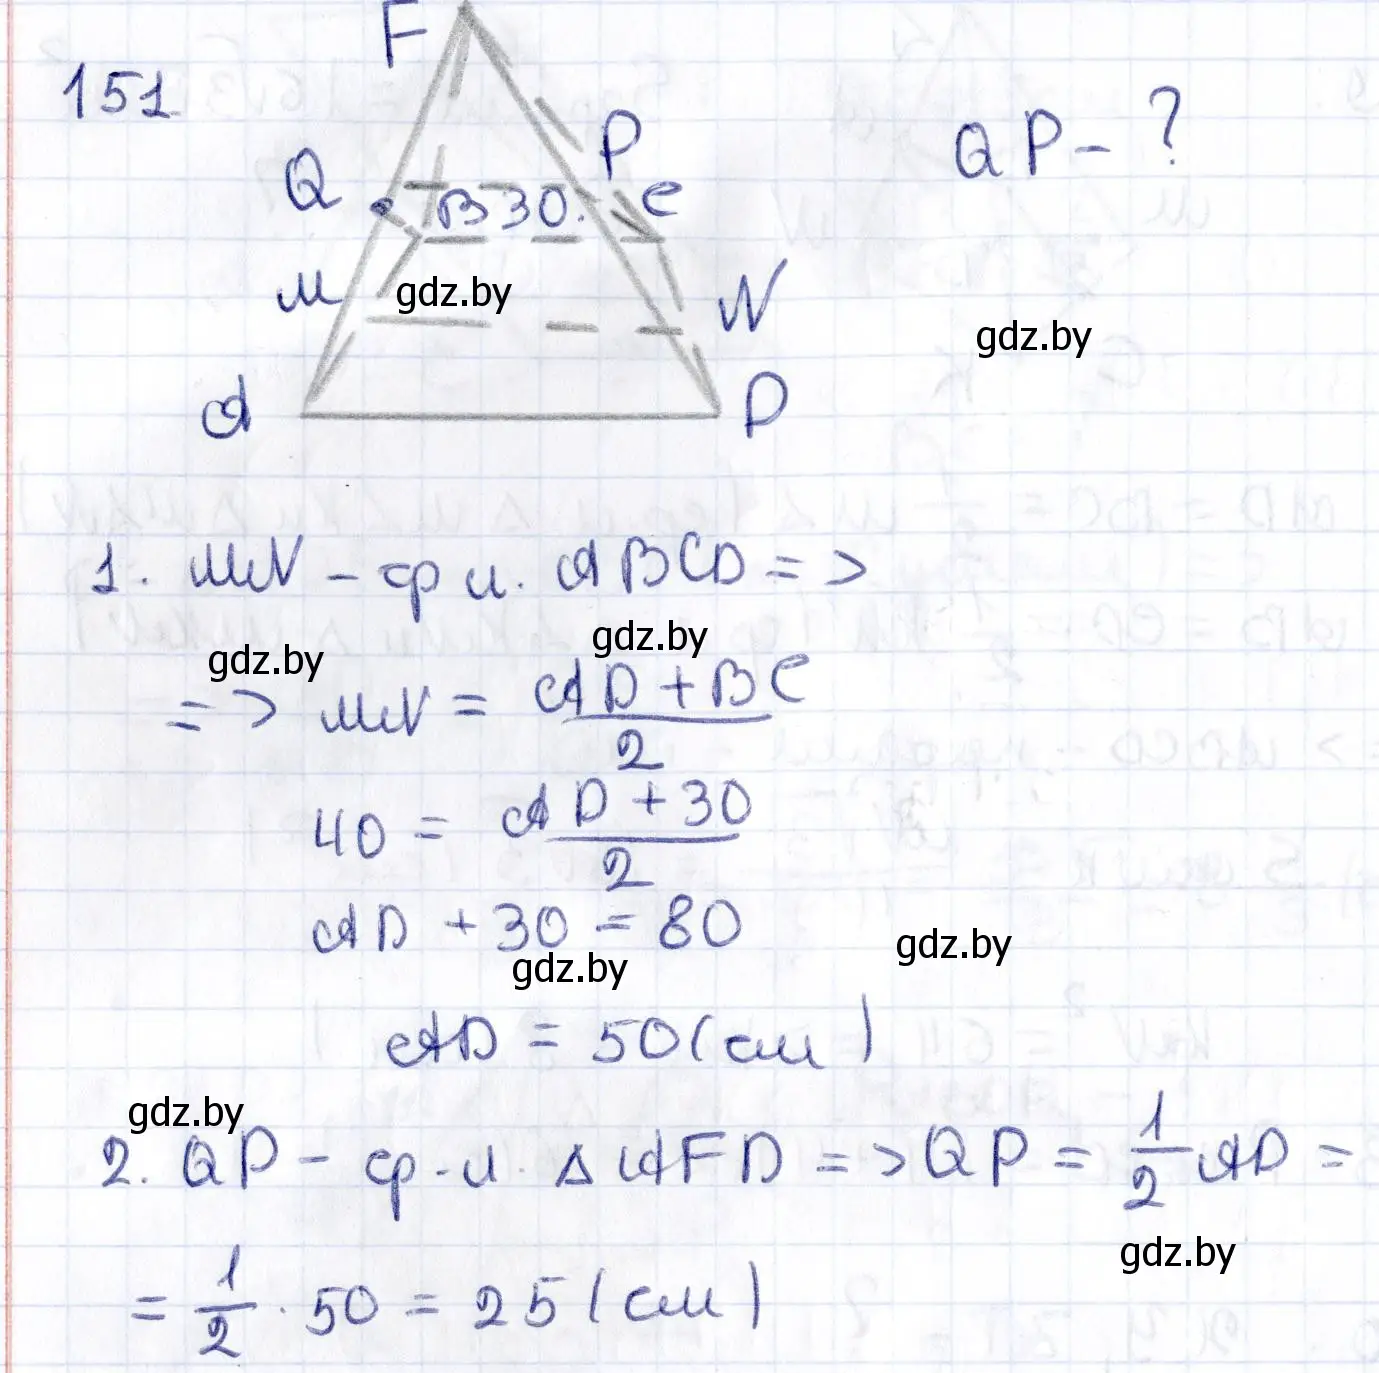 151
F
Q
P
B 30
C
M
N
A
D
QP - ?
gdz.by
gdz.by
1. MN - ср л. ABCD =>
gdz.by
gdz.by
=> MN = AD + BC / 2
40 = AD + 30 / 2
AD + 30 = 80
gdz.by
gdz.by
AD = 50 (см)
gdz.by
2. QP - ср. л. Δ AFD => QP = 1/2 AD =
gdz.by
= 1/2 · 50 = 25 (см)